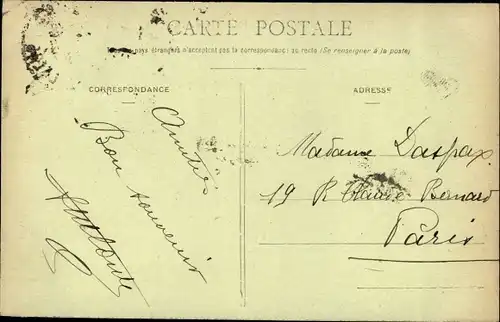 CARTE POSTALE
pays étrangers n'acceptent pas la correspondance au recto (Se renseigner à la poste)
CORRESPONDANCE
Amitiés
Bon souvenir
ADRESSE
Madame Daspax
19 R Claude Bernard
Paris